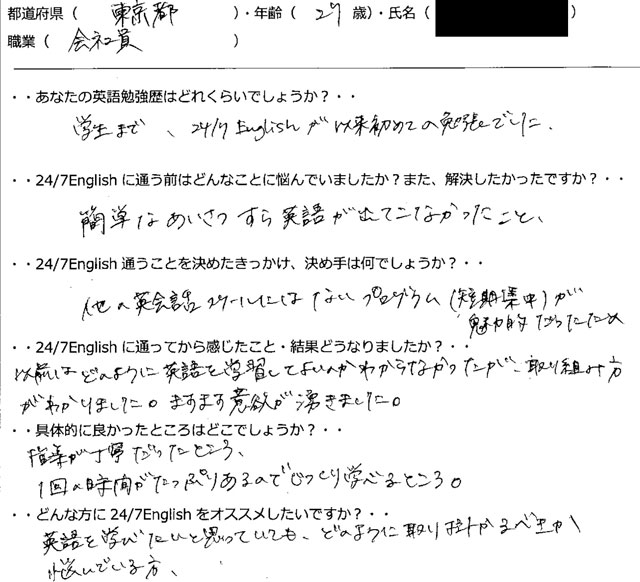 都道府県（ 東京都 ）・年齢（ 27 歳）・氏名（ ）
職業（ 会社員 ）
・・あなたの英語勉強歴はどれくらいでしょうか？・・
学生まで、24/7 Englishが以来初めての勉強でした。
・・24/7English に通う前はどんなことに悩んでいましたか？また、解決したかったですか？・・
簡単なあいさつすら英語が出てこなかったこと、
・・24/7English 通うことを決めたきっかけ、決め手は何でしょうか？・・
他の英会話スクールにはないプログラム（短期集中）が
魅力的だったため
・・24/7English に通ってから感じたこと・結果どうなりましたか？・・
以前はどのように英語を学習してよいのかわからなかったが、取り組み方
がわかりました。ますます意欲が湧きました。
・・具体的に良かったところはどこでしょうか？・・
指導が丁寧だったところ、
1回の時間がたっぷりあるのでじっくり学べるところ。
・・どんな方に 24/7English をオススメしたいですか？・・
英語を学びたいと思っていても、どのように取り掛かるべきか
悩んでいる方、